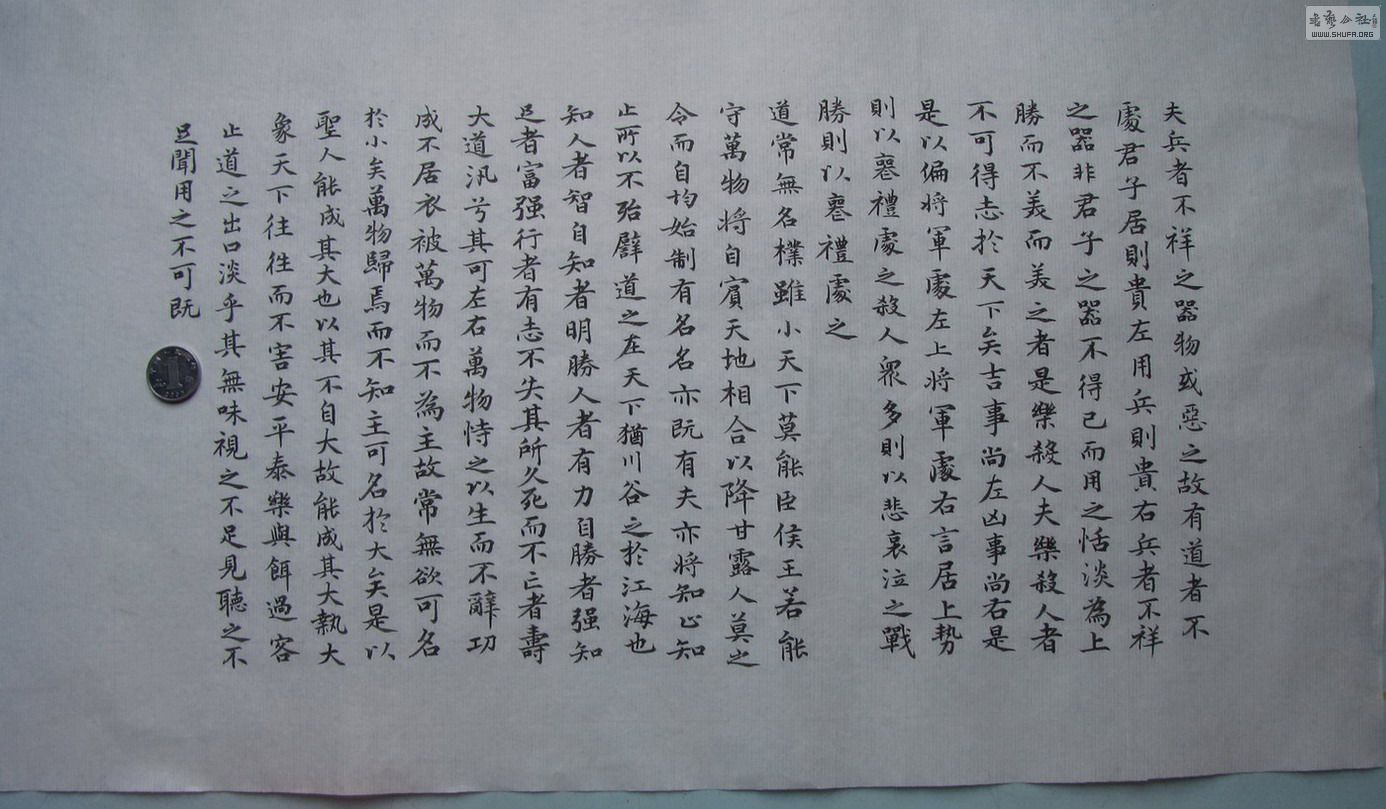 夫兵者不祥之器物或惡之故有道者不
處君子居則貴左用兵則貴右兵者不祥
之器非君子之器不得已而用之恬淡為上
勝而不美而美之者是樂殺人夫樂殺人者
不可得志於天下矣吉事尚左凶事尚右是
是以偏將軍處左上將軍處右言居上勢
則以喪禮處之殺人眾多則以悲哀泣之戰
勝則以喪禮處之
道常無名樸雖小天下莫能臣侯王若能
守萬物將自賓天地相合以降甘露人莫之
令而自均始制有名名亦既有夫亦將知止知
止所以不殆譬道之在天下猶川谷之於江海也
知人者智自知者明勝人者有力自勝者强知
足者富强行者有志不失其所久死而不亡者壽
大道汎兮其可左右萬物恃之以生而不辭功
成不居衣被萬物而不為主故常無欲可名
於小矣萬物歸焉而不知主可名於大矣是以
聖人能成其大也以其不自大故能成其大執大
象天下往往而不害安平泰樂與餌過客
止道之出口淡乎其無味視之不足見聽之不
足聞用之不可既
書法公社
WWW.SHUFA.ORG